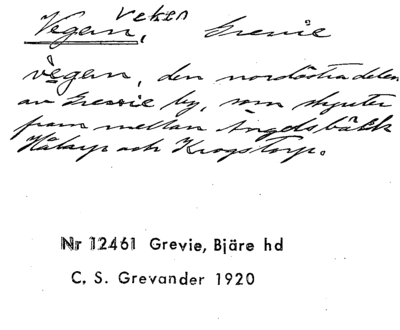 veken
Vegan, Grevie
vegan, den nordöstra delen
av Grevie by, som skjuter
fram mellan Ängelsbäck
Hålarp och Krogstorp.
Nr 12461 Grevie, Bjäre hd
C. S. Grevander 1920